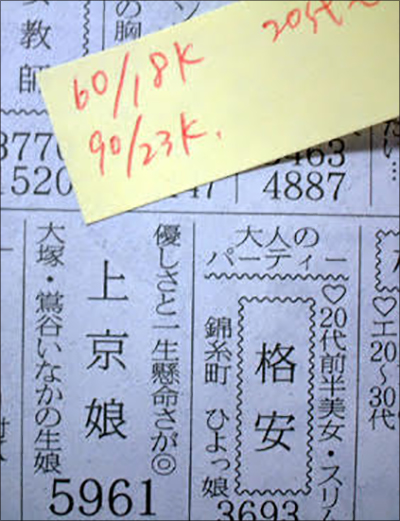 の胸
教師
60/18K
90/23K.
3770
1520
147
3463
4887
優しさと一生懸命さが◎
上京娘
大塚・鶯谷いなかの生娘
5961
大人の
パーティー
♡20代前半美女・スリム
格安
錦糸町 ひよっ娘
3693
♡エ
20〜30代